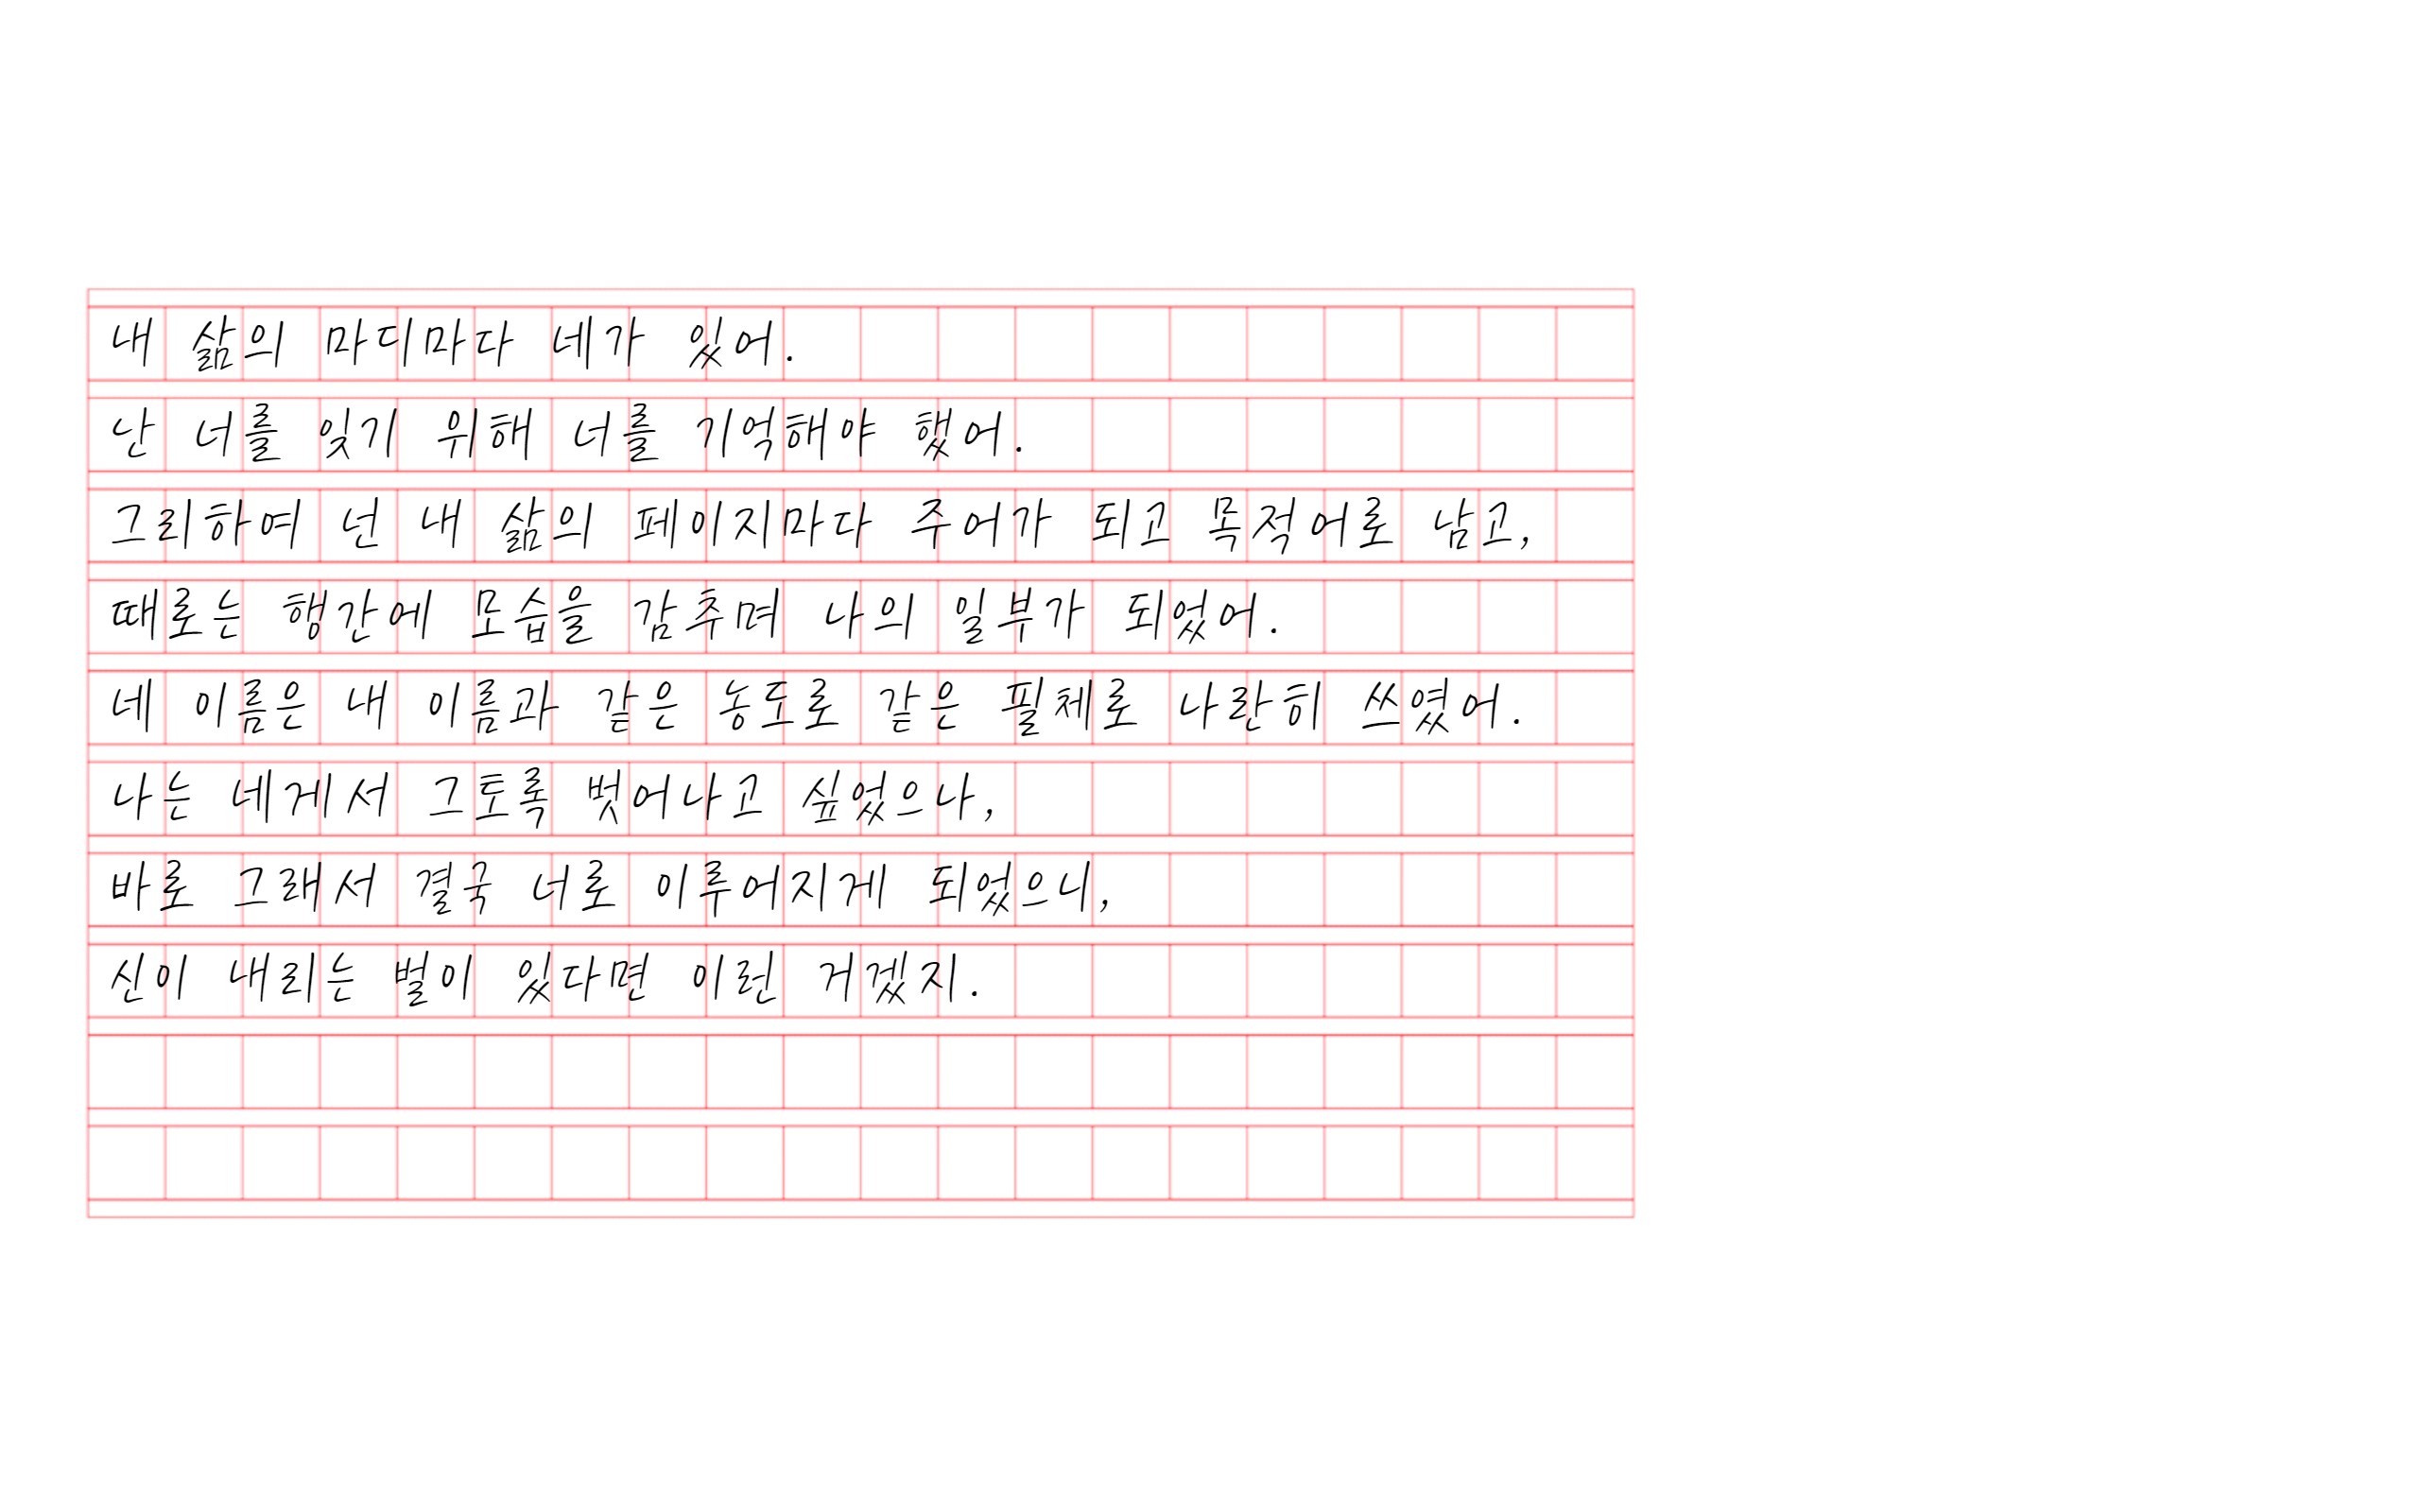 내 삶의 마디마다 네가 있어.
난 너를 잊기 위해 너를 기억해야 했어.
그리하여 넌 내 삶의 페이지마다 주어가 되고 목적어로 남고,
때로는 행간에 모습을 감추며 나의 일부가 되었어.
네 이름은 내 이름과 같은 농도로 같은 필체로 나란히 쓰였어.
나는 네게서 그토록 벗어나고 싶었으나,
바로 그래서 결국 너로 이루어지게 되었으니,
신이 내리는 벌이 있다면 이런 거겠지.